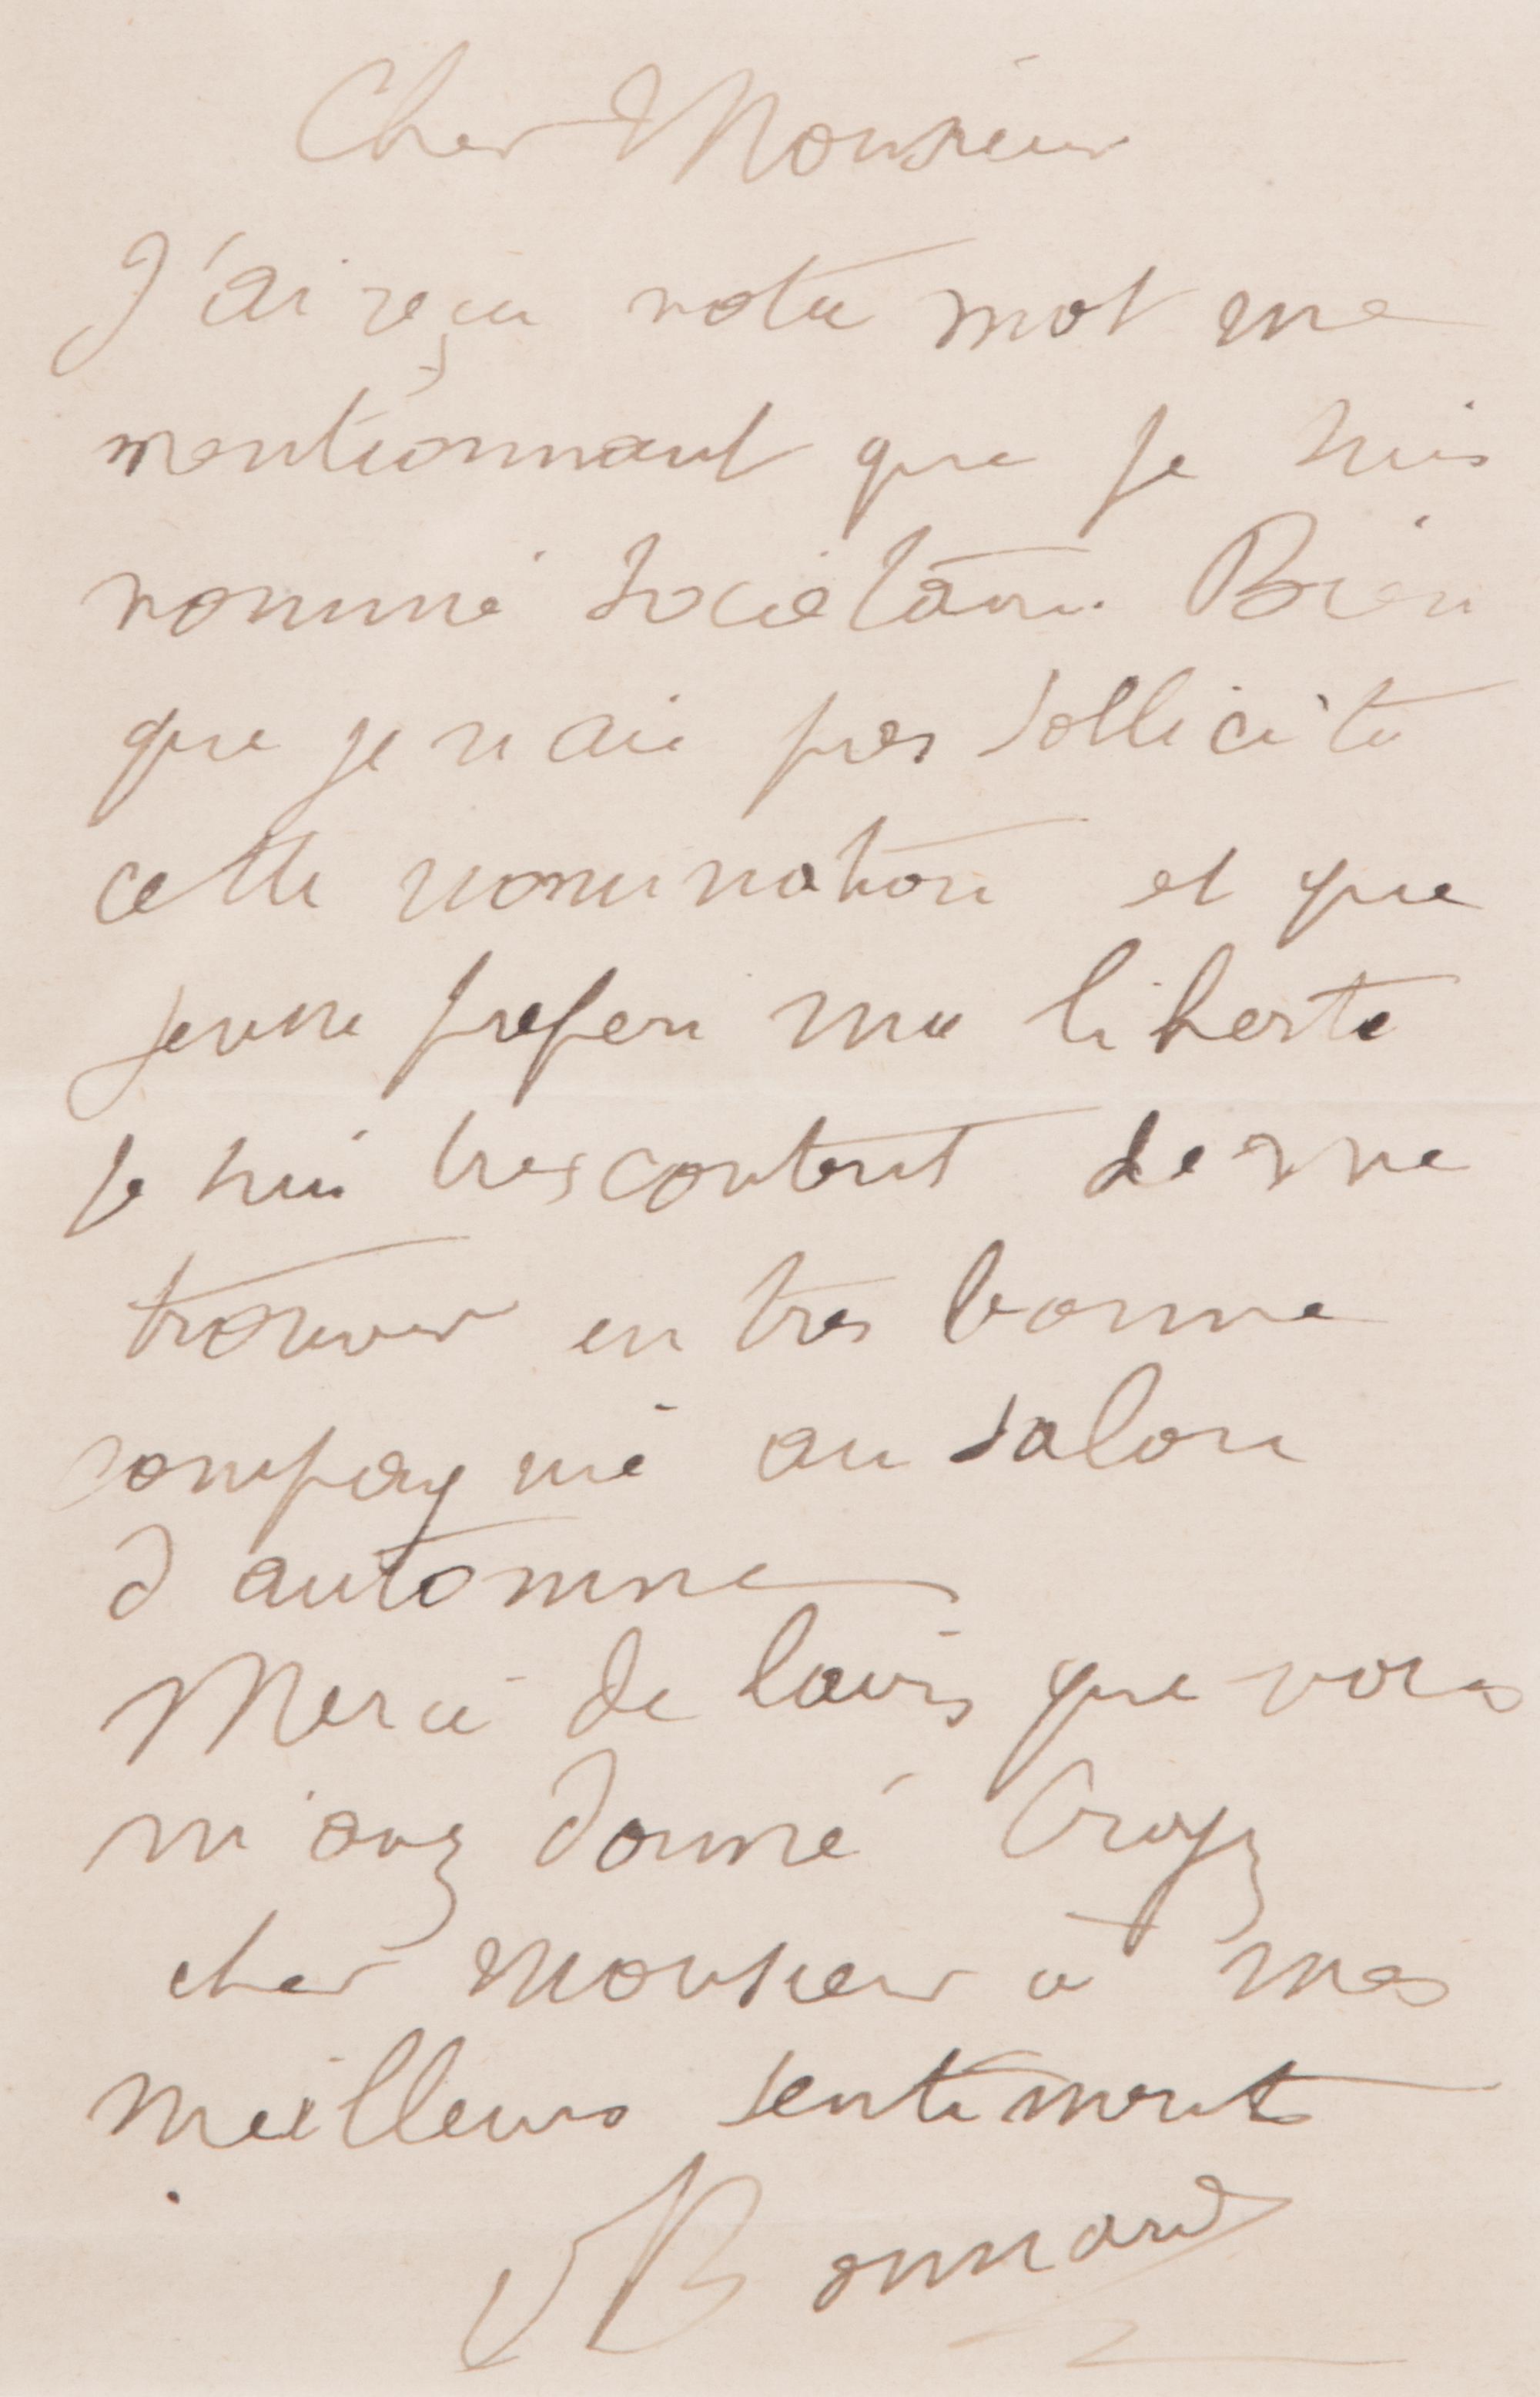 Cher Monsieur
J'ai reçu votre mot me
mentionnant que je suis
nommé sociétaire. Bien
que je n aie pas sollicité
cette nomination et que
jeune prefere ma liberte
je suis tres content de me
trouver en tres bonne
compagnie au salon
d automne
Merci de lavis que vous
m'avez donné Croyez
cher monsieur à mes
meilleurs sentiments
Bonnard